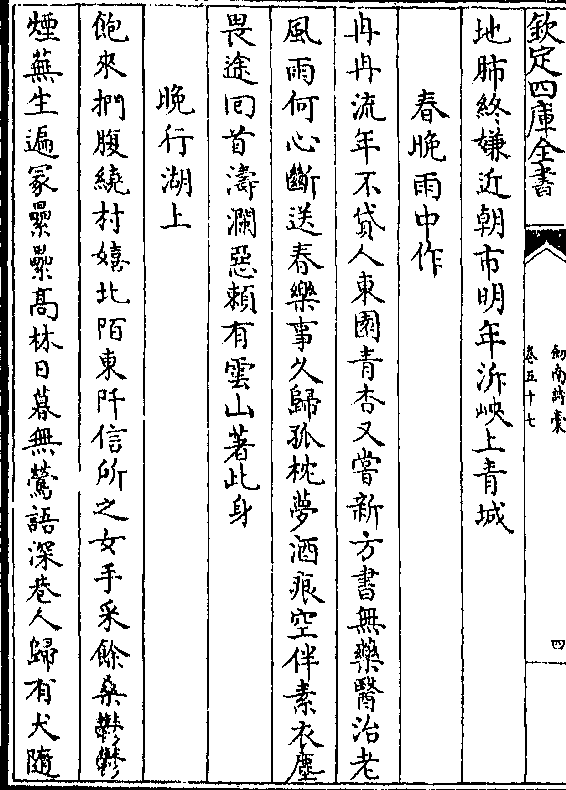 欽定四庫全書
劒南詩藁
卷五十七
四
地肺終嫌近朝市明年泝峽上青城
春晚雨中作
冉冉流年不貸人東園青杏又嘗新方書無藥醫治老
風雨何心斷送春樂事久歸孤枕夢酒痕空伴素衣塵
畏途回首濤瀾惡頼有雲山著此身
晚行湖上
飽來捫腹繞村嬉北陌東阡信所之女手采餘桑鬱鬱
煙蕪生遍冢纍纍髙林日暮無鶯語深巷人歸有犬隨